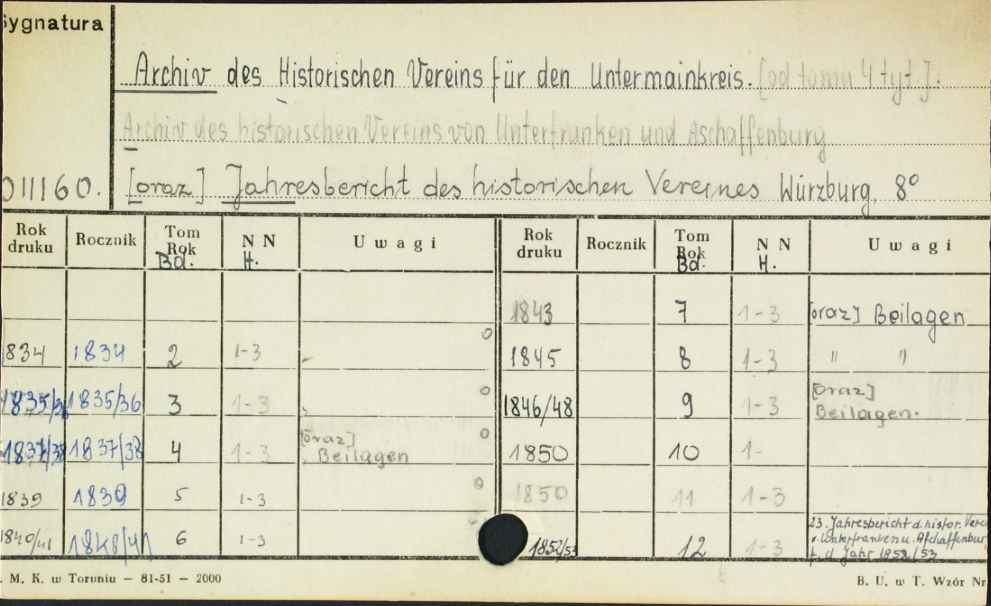 Sygnatura
Archiv des Historischen Vereins für den Untermainkreis. [od tomu 4 tyt.]:
Archiv des historischen Vereins von Unterfranken und Aschaffenburg
011160. [oraz] Jahresbericht des historischen Vereines Würzburg. 8°
Rok druku Rocznik Tom Rok Bd. N N H. U w a g i Rok druku Rocznik Tom Rok Bd. N N H. U w a g i
1843 7 1-3 [oraz] Beilagen
1834 1834 2 1-3 1845 8 1-3 " "
1835/36 1835/36 3 1-3 1846/48 9 1-3 [oraz] Beilagen.
1837/38 1837/38 4 1-3 [oraz] Beilagen 1850 10 1-
1839 1839 5 1-3 1850 11 1-3
1840/41 1840/41 6 1-3 1852/53 12 1-3 23. Jahresbericht d. histor. Verei
v. Unterfranken u. Aschaffenbur
f. d. Jahr 1852/53
. M. K. w Toruniu — 81-51 — 2000 B. U. w T. Wzór Nr